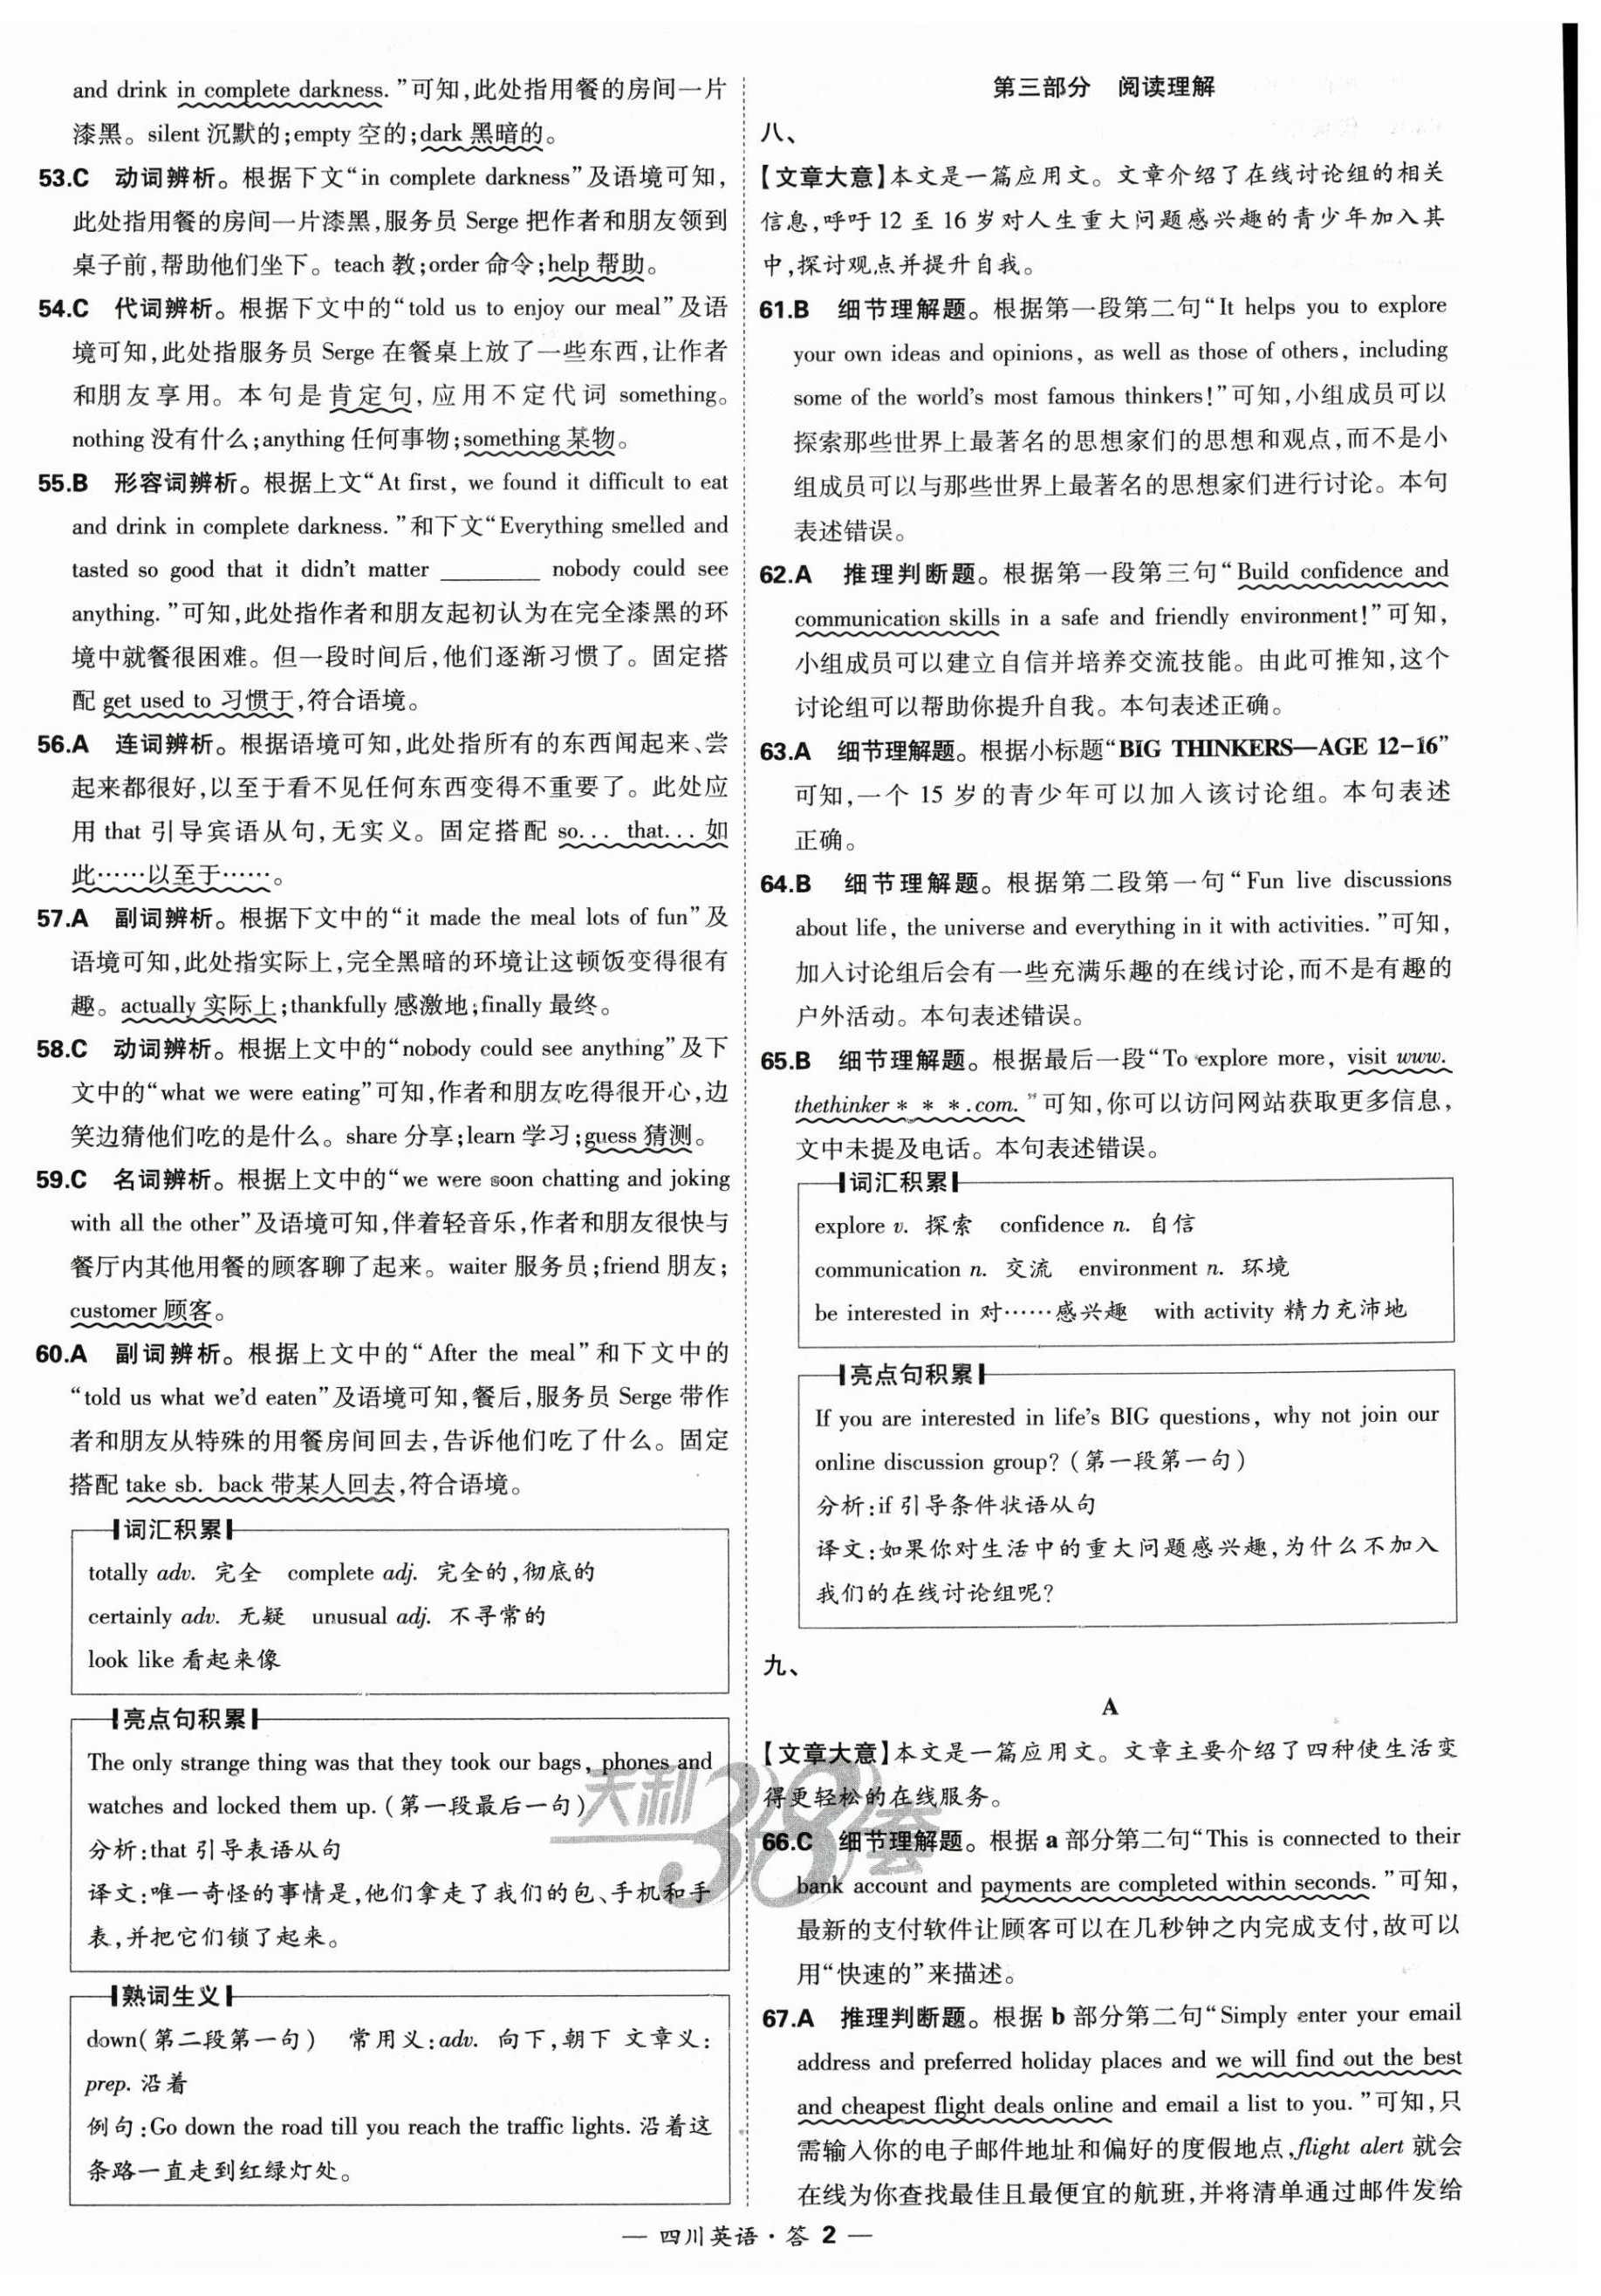 and drink in complete darkness.”可知,此处指用餐的房间一片
漆黑。silent 沉默的;empty 空的;dark 黑暗的。
53.C 动词辨析。根据下文“in complete darkness”及语境可知,
此处指用餐的房间一片漆黑,服务员 Serge 把作者和朋友领到
桌子前,帮助他们坐下。teach 教;order 命令;help 帮助。
54.C 代词辨析。根据下文中的“told us to enjoy our meal”及语
境可知,此处指服务员 Serge 在餐桌上放了一些东西,让作者
和朋友享用。本句是肯定句,应用不定代词 something。
nothing 没有什么;anything 任何事物;something 某物。
55.B 形容词辨析。根据上文“At first, we found it difficult to eat
and drink in complete darkness.”和下文“Everything smelled and
tasted so good that it didn't matter ________ nobody could see
anything.”可知,此处指作者和朋友起初认为在完全漆黑的环
境中就餐很困难。但一段时间后,他们逐渐习惯了。固定搭
配 get used to 习惯于,符合语境。
56.A 连词辨析。根据语境可知,此处指所有的东西闻起来、尝
起来都很好,以至于看不见任何东西变得不重要了。此处应
用 that 引导宾语从句,无实义。固定搭配 so... that... 如
此……以至于……。
57.A 副词辨析。根据下文中的“it made the meal lots of fun”及
语境可知,此处指实际上,完全黑暗的环境让这顿饭变得很有
趣。actually 实际上;thankfully 感激地;finally 最终。
58.C 动词辨析。根据上文中的“nobody could see anything”及下
文中的“what we were eating”可知,作者和朋友吃得很开心,边
笑边猜他们吃的是什么。share 分享;learn 学习;guess 猜测。
59.C 名词辨析。根据上文中的“we were soon chatting and joking
with all the other”及语境可知,伴着轻音乐,作者和朋友很快与
餐厅内其他用餐的顾客聊了起来。waiter 服务员;friend 朋友;
customer 顾客。
60.A 副词辨析。根据上文中的“After the meal”和下文中的
“told us what we'd eaten”及语境可知,餐后,服务员 Serge 带作
者和朋友从特殊的用餐房间回去,告诉他们吃了什么。固定
搭配 take sb. back 带某人回去,符合语境。
词汇积累
totally adv. 完全 complete adj. 完全的,彻底的
certainly adv. 无疑 unusual adj. 不寻常的
look like 看起来像
亮点句积累
The only strange thing was that they took our bags, phones and
watches and locked them up.(第一段最后一句)
分析:that 引导表语从句
译文:唯一奇怪的事情是,他们拿走了我们的包、手机和手
表,并把它们锁了起来。
熟词生义
down(第二段第一句) 常用义:adv. 向下,朝下 文章义:
prep. 沿着
例句:Go down the road till you reach the traffic lights. 沿着这
条路一直走到红绿灯处。
第三部分 阅读理解
八、
【文章大意】本文是一篇应用文。文章介绍了在线讨论组的相关
信息,呼吁 12 至 16 岁对人生重大问题感兴趣的青少年加入其
中,探讨观点并提升自我。
61.B 细节理解题。根据第一段第二句“It helps you to explore
your own ideas and opinions, as well as those of others, including
some of the world's most famous thinkers!”可知,小组成员可以
探索那些世界上最著名的思想家们的思想和观点,而不是小
组成员可以与那些世界上最著名的思想家们进行讨论。本句
表述错误。
62.A 推理判断题。根据第一段第三句“Build confidence and
communication skills in a safe and friendly environment!”可知,
小组成员可以建立自信并培养交流技能。由此可推知,这个
讨论组可以帮助你提升自我。本句表述正确。
63.A 细节理解题。根据小标题“BIG THINKERS—AGE 12-16”
可知,一个 15 岁的青少年可以加入该讨论组。本句表述
正确。
64.B 细节理解题。根据第二段第一句“Fun live discussions
about life, the universe and everything in it with activities.”可知,
加入讨论组后会有一些充满乐趣的在线讨论,而不是有趣的
户外活动。本句表述错误。
65.B 细节理解题。根据最后一段“To explore more, visit www.
thethinker * * *.com.”可知,你可以访问网站获取更多信息,
文中未提及电话。本句表述错误。
词汇积累
explore v. 探索 confidence n. 自信
communication n. 交流 environment n. 环境
be interested in 对……感兴趣 with activity 精力充沛地
亮点句积累
If you are interested in life's BIG questions, why not join our
online discussion group?(第一段第一句)
分析:if 引导条件状语从句
译文:如果你对生活中的重大问题感兴趣,为什么不加入
我们的在线讨论组呢?
九、
A
【文章大意】本文是一篇应用文。文章主要介绍了四种使生活变
得更轻松的在线服务。
66.C 细节理解题。根据 a 部分第二句“This is connected to their
bank account and payments are completed within seconds.”可知,
最新的支付软件让顾客可以在几秒钟之内完成支付,故可以
用“快速的”来描述。
67.A 推理判断题。根据 b 部分第二句“Simply enter your email
address and preferred holiday places and we will find out the best
and cheapest flight deals online and email a list to you.”可知,只
需输入你的电子邮件地址和偏好的度假地点,flight alert 就会
在线为你查找最佳且最便宜的航班,并将清单通过邮件发给
天利38套
— 四川英语·答 2 —